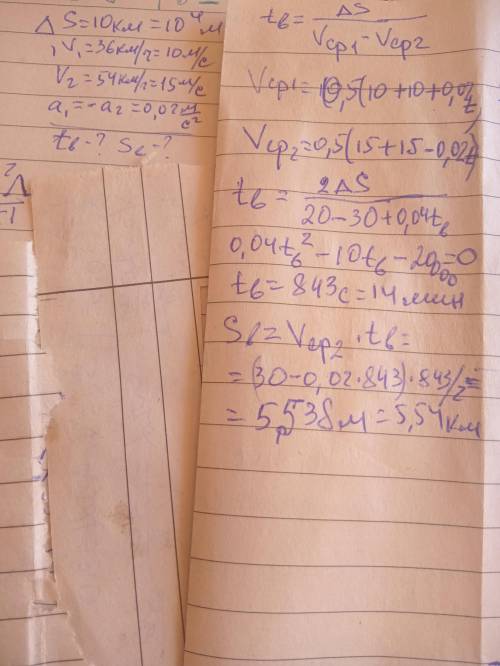 ΔS=10км=10⁴м
V₁=36км/ч=10м/с
V₂=54км/ч=15м/с
a₁=-a₂=0,02м/с²
tв-? Sв-?
tв = ΔS / (Vср1 - Vср2)
Vср1=0,5(10+10+0,02t)
Vср2=0,5(15+15-0,02t)
tв = 2ΔS / (20-30+0,04tв)
0,04tв²-10tв-20000=0
tв=843с=14мин
Sв=Vср2·tв=
=(30-0,02·843)·843/2=
=5538м=5,54км